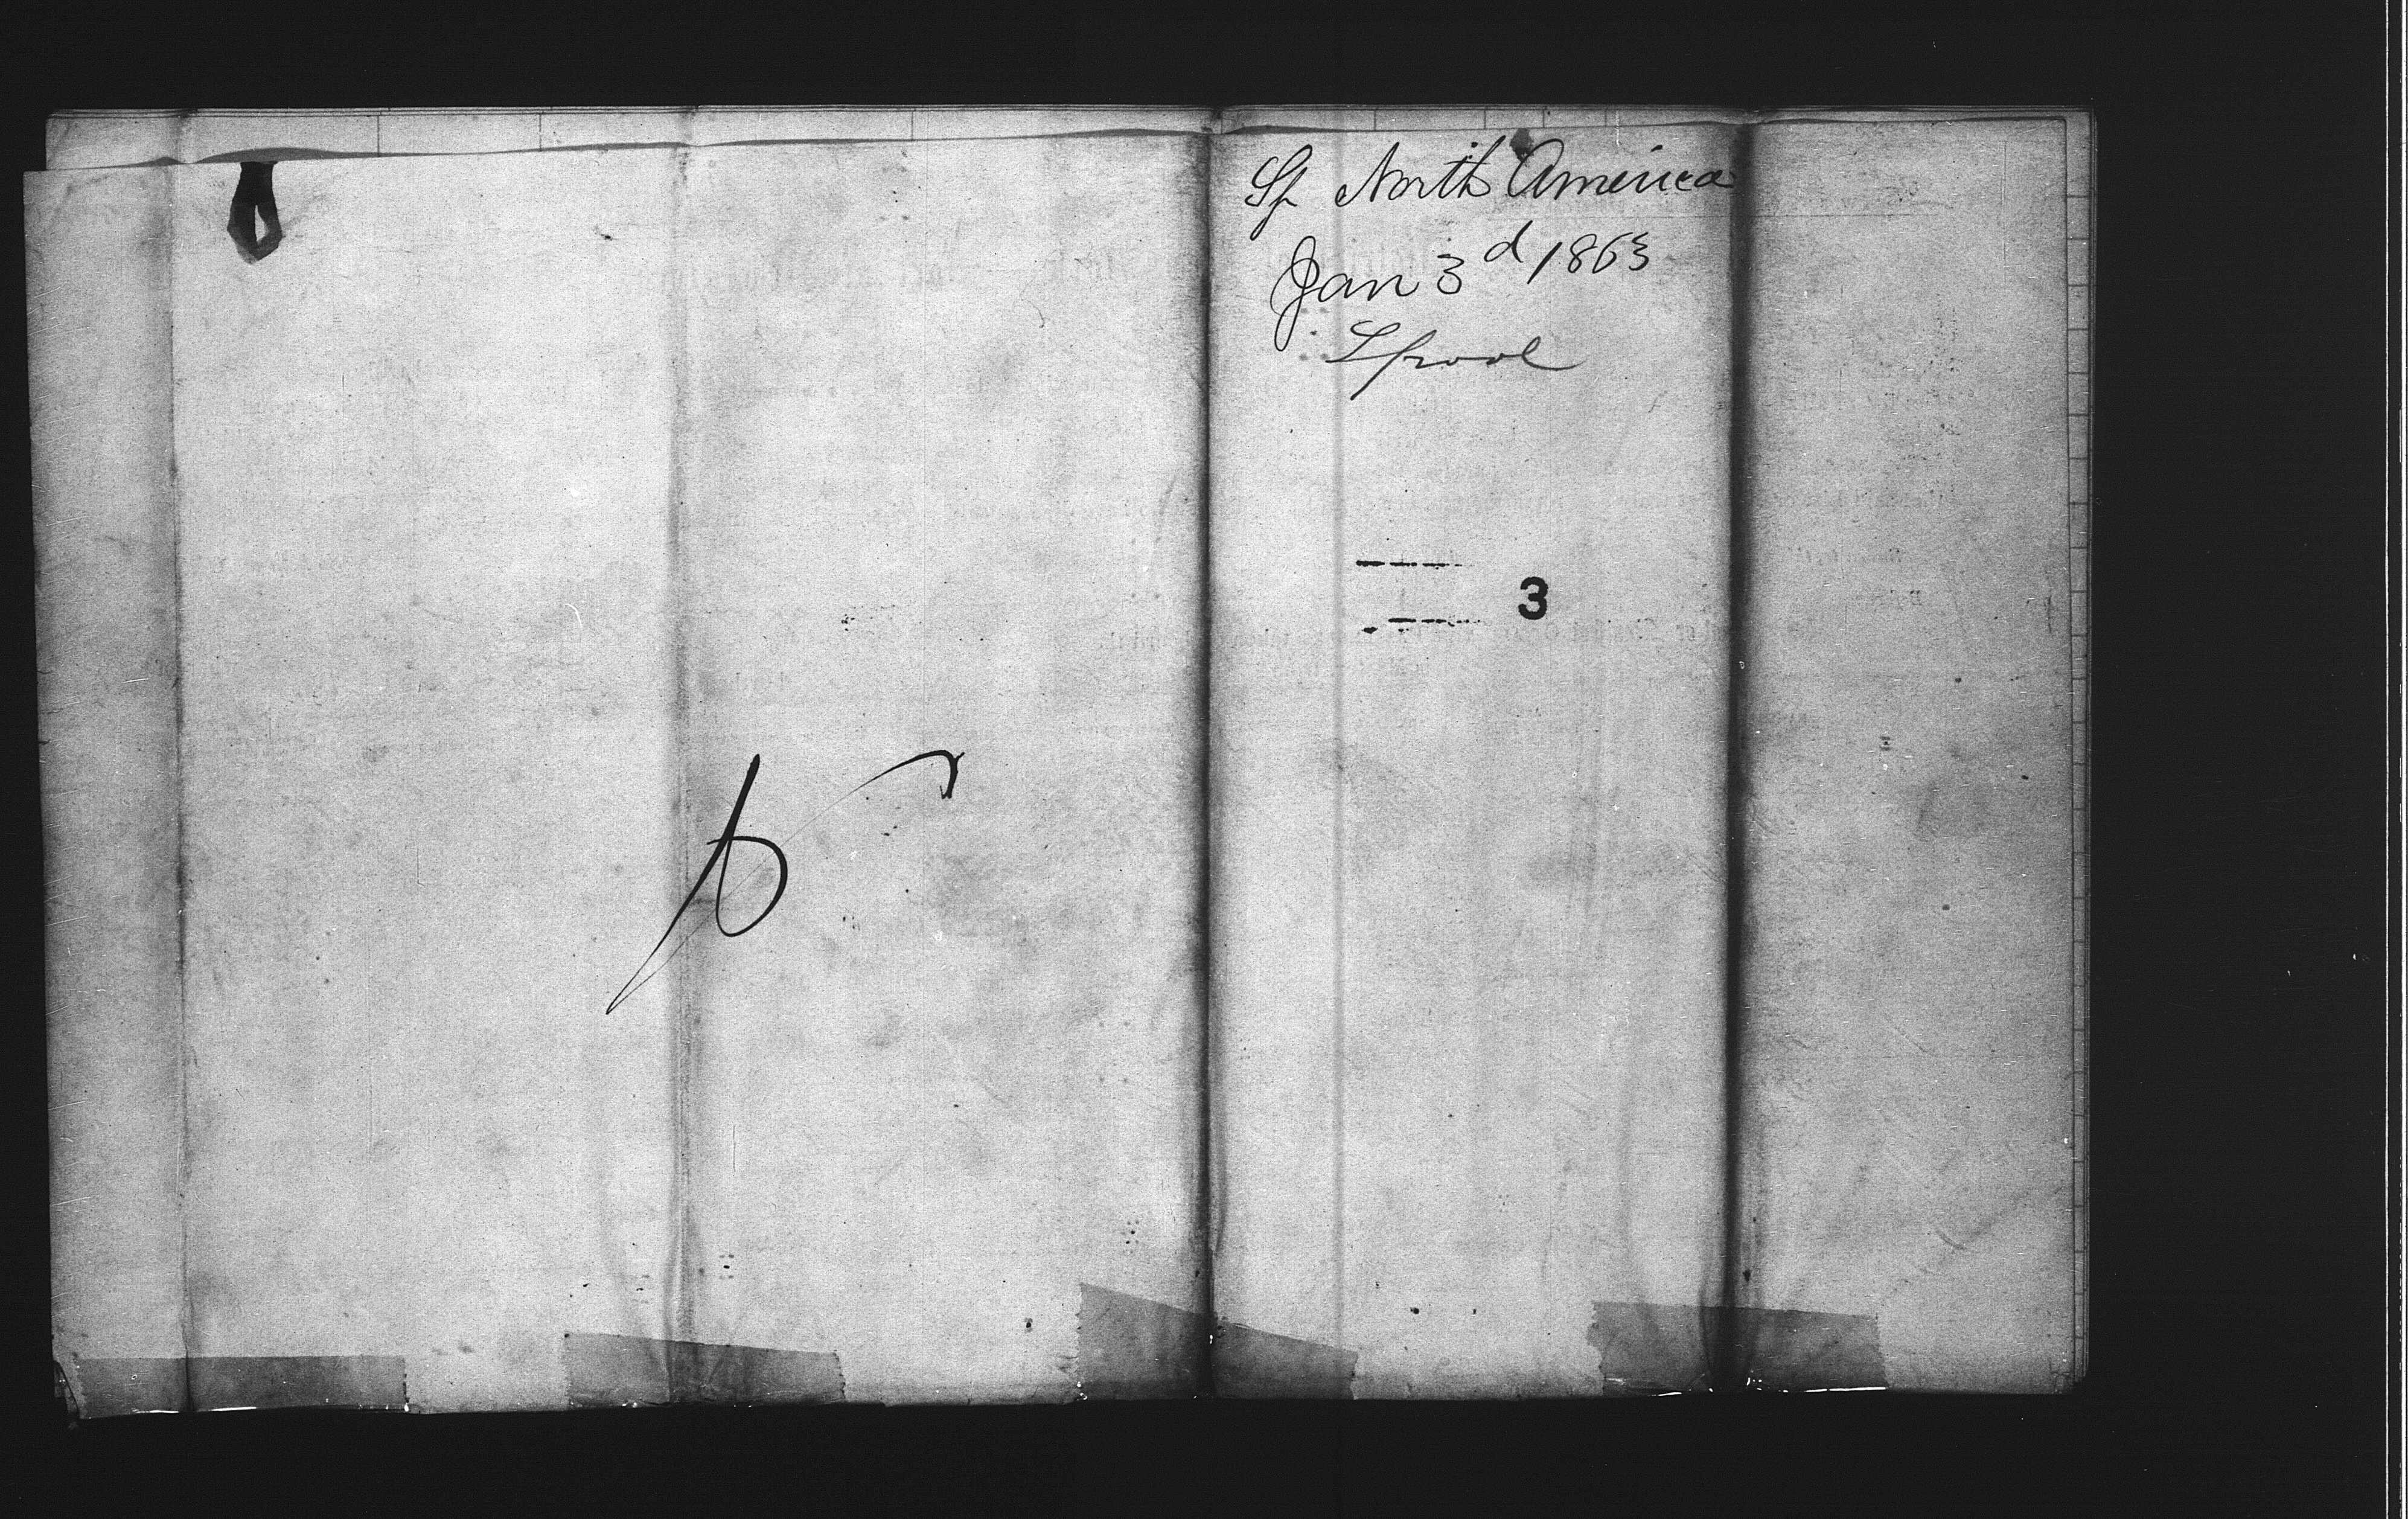 Sp North America
Jan 3d 1863
Lpool
3